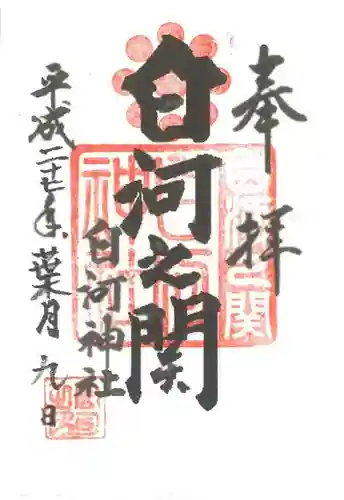 奉拝
白河之関
白河神社
平成二十七年葉月九日